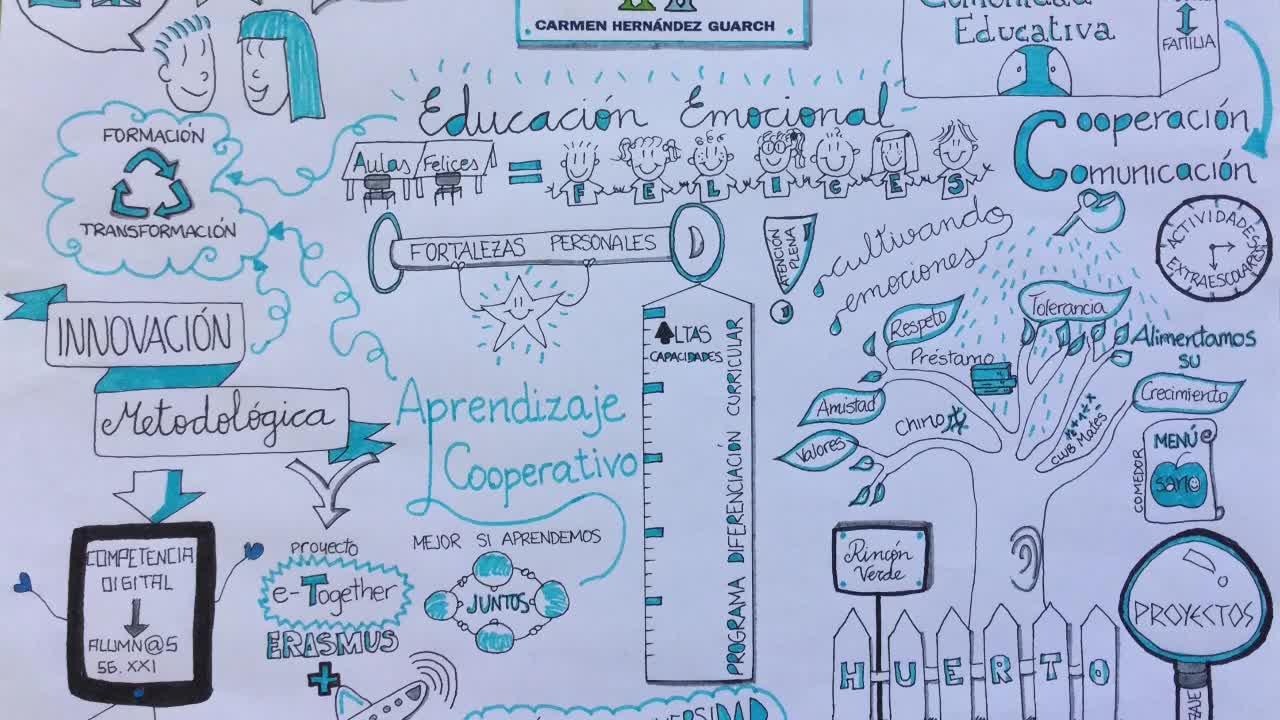 CARMEN HERNÁNDEZ GUARCH
Educativa
FAMILIA
Educación Emocional
Aulas Felices = FELICES
FORMACIÓN
TRANSFORMACIÓN
Cooperación
Comunicación
FORTALEZAS PERSONALES
ATENCIÓN PLENA
cultivando
emociones
ACTIVIDADES
EXTRAESCOLARES
INNOVACIÓN
Metodológica
Aprendizaje
Cooperativo
ALTAS
CAPACIDADES
PROGRAMA DIFERENCIACIÓN CURRICULAR
Respeto
Tolerancia
Préstamo
Alimentamos
SU
Crecimiento
Amistad
Chino
CLUB Mates
Valores
MENÚ
sano
COMEDOR
COMPETENCIA
DIGITAL
ALUMN@S
SG. XXI
proyecto
e-Together
ERASMUS
+
MEJOR SI APRENDEMOS
JUNTOS
Rincón
Verde
HUERTO
PROYECTOS